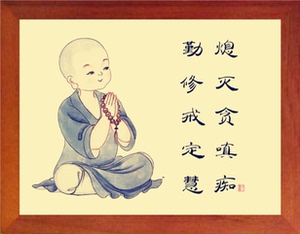 勤修戒定慧
熄灭贪嗔痴